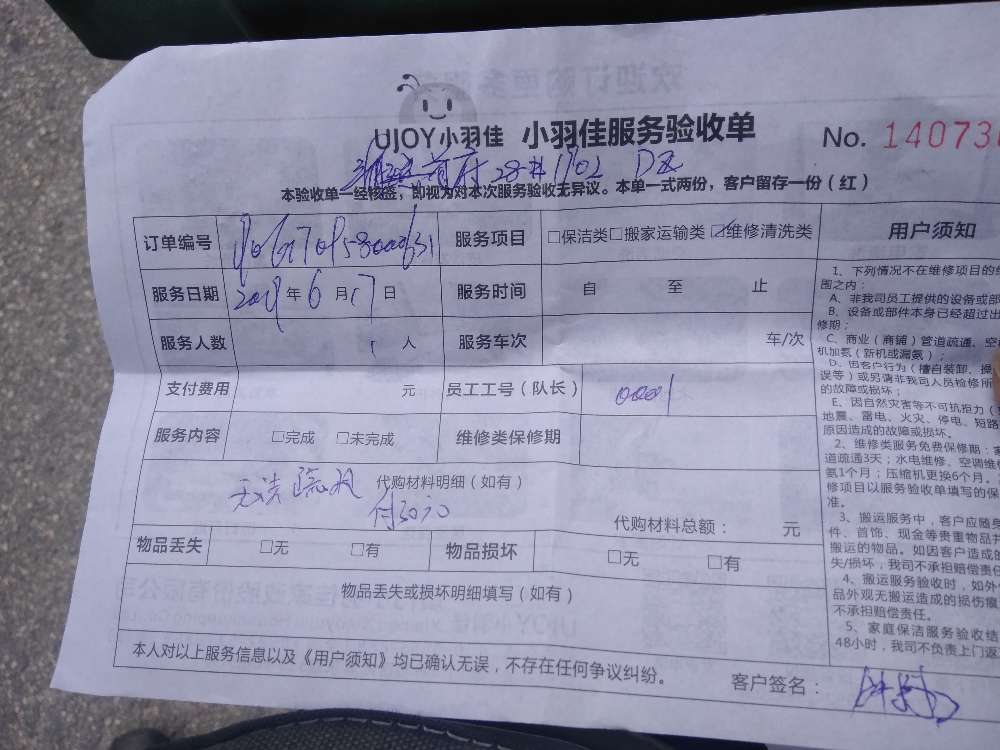 UJOY小羽佳 小羽佳服务验收单 No. 14073
首府 28# 1702
本验收单一经核签，即视为对本次服务验收无异议。本单一式两份，客户留存一份（红）
订单编号 服务项目 □保洁类□搬家运输类 ☑维修清洗类 用户须知
服务日期 年 6 月 17 日 服务时间 自 至 止
服务人数 1 人 服务车次 车/次
支付费用 元 员工工号（队长） 0001
服务内容 □完成 □未完成 维修类保修期
无法 代购材料明细（如有）
付30元
代购材料总额： 元
物品丢失 □无 □有 物品损坏 □无 □有
物品丢失或损坏明细填写（如有）
本人对以上服务信息以及《用户须知》均已确认无误，不存在任何争议纠纷。
客户签名：
1、下列情况不在维修项目的
围之内：
A、非我司员工提供的设备或部
B、设备或部件本身已经超过出
修期；
C、商业（商铺）管道疏通、空
机加氨（新机或漏氨）；
D、因客户行为（擅自装卸、操
误等）或另请非我司人员检修所
的故障或损坏；
E、因自然灾害等不可抗拒力（
地震、雷电、火灾、停电、短路
原因造成的故障或损坏。
2、维修类服务免费保修期：
道疏通3天；水电维修、空调维
氨1个月；压缩机更换6个月。
修项目以服务验收单填写的保
准。
3、搬运服务中，客户应随身
件、首饰、现金等贵重物品并
搬运的物品。如因客户造成的
失/损坏，我司不承担赔偿责任
4、搬运服务验收时，如外
品外观无搬运造成的损伤痕
不承担赔偿责任。
5、家庭保洁服务验收结
48小时，我司不负责上门返